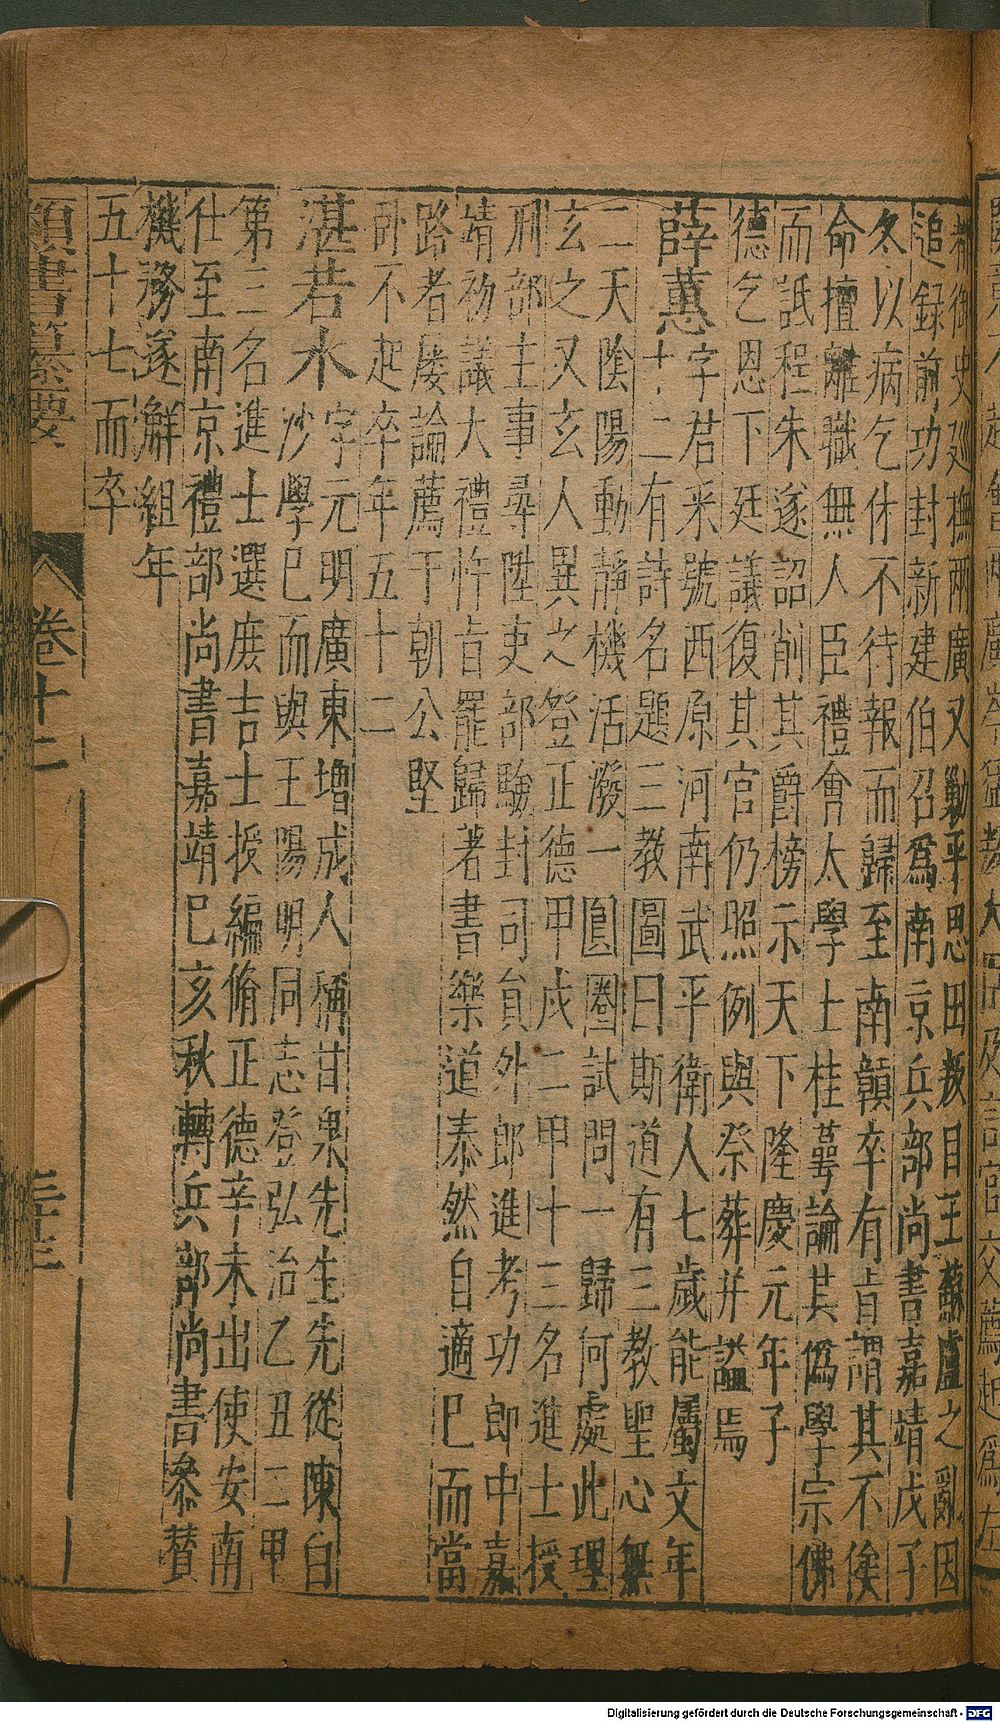 都御史廵撫兩廣又勦平思田叛目王蘇盧之亂因
追録前功封新建伯召爲南京兵部尚書嘉靖戊子
冬以病乞休不待報而歸至南贛卒有旨謂其不俟
命擅離職無人臣禮會大學士桂萼論其僞學宗佛
而詆程朱遂詔削其爵榜示天下隆慶元年子
德乞恩下廷議復其官仍照例與祭葬并謚焉
薛蕙字君采號西原河南武平衛人七歲能屬文年
十二有詩名題三教圖曰斯道有三教聖心無
二天陰陽動静機活潑一圓圈試問一歸何處此理
玄之又玄人異之登正德甲戌二甲十三名進士授
刑部主事尋陞吏部驗封司員外郎進考功郎中嘉
靖初議大禮忤旨罷歸著書樂道泰然自適巳而當
路者屡論薦于朝公堅
卧不起卒年五十二
湛若水字元明廣東增成人稱甘泉先生先從陳白
沙學巳而與王陽明同志登弘治乙丑二甲
第三名進士選庶吉士授編脩正德辛未出使安南
仕至南京禮部尚書嘉靖巳亥秋轉兵部尚書叅賛
機務遂解組年
五十七而卒
類書纂要
卷十二